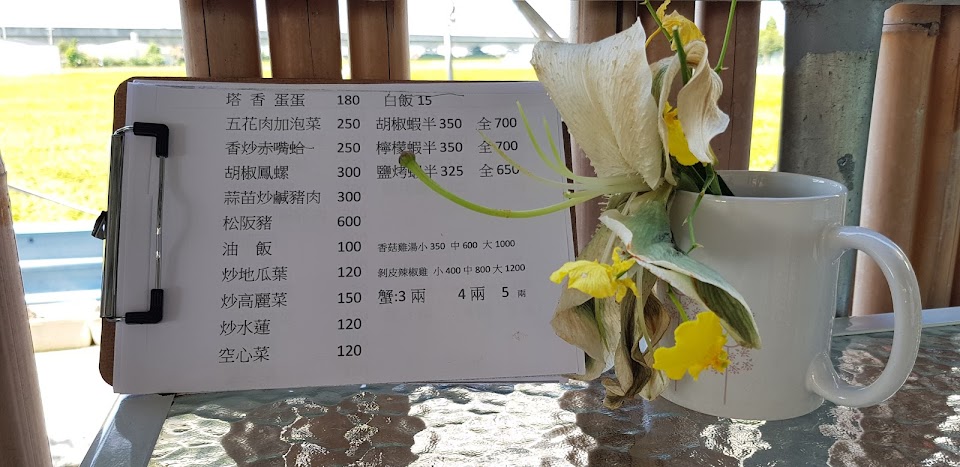 塔香蛋蛋 180 白飯 15
五花肉加泡菜 250 胡椒蝦半 350 全 700
香炒赤嘴蛤 250 檸檬蝦半 350 全 700
胡椒鳳螺 300 鹽烤蝦半 325 全 650
蒜苗炒鹹豬肉 300
松阪豬 600
油飯 100 香菇雞湯小 350 中 600 大 1000
炒地瓜葉 120 剝皮辣椒雞 小 400 中 800 大 1200
炒高麗菜 150 蟹:3 兩 4 兩 5 兩
炒水蓮 120
空心菜 120